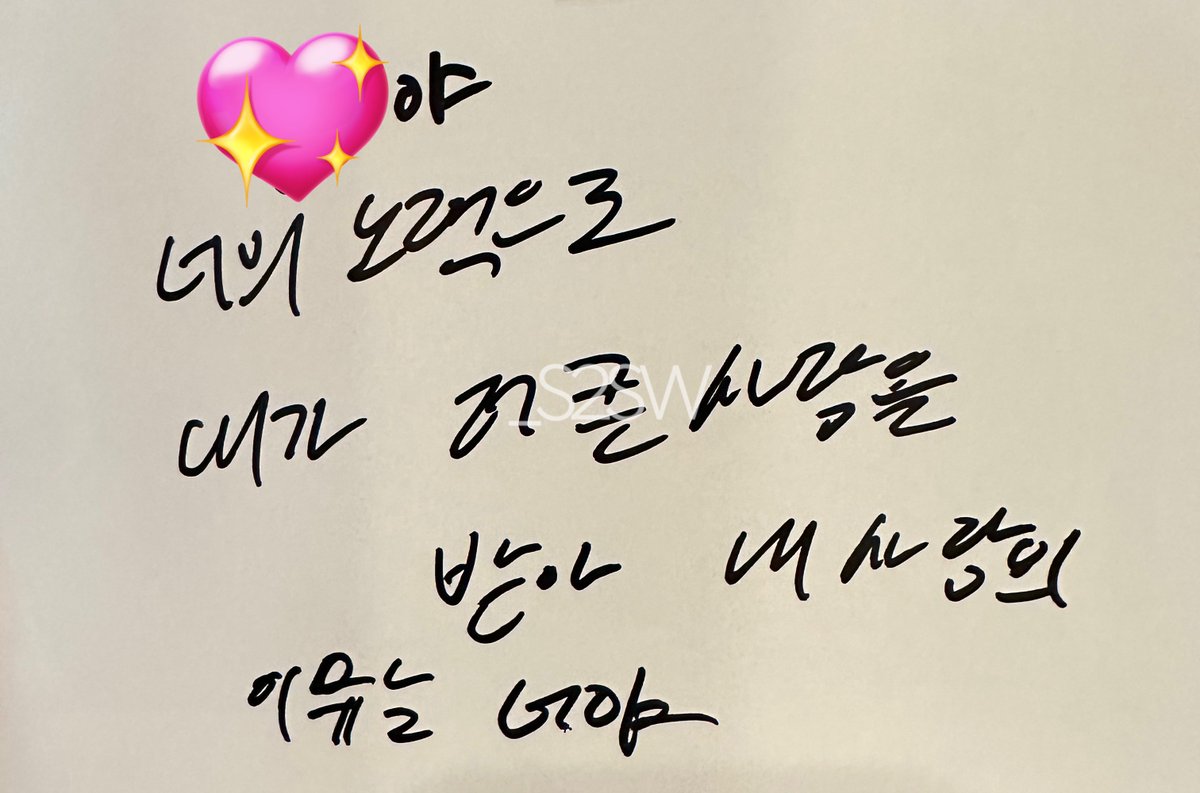 야
너의 노력으로
내가 더 큰 사랑을
_S2SW
받아 내 사랑의
이유는 너야